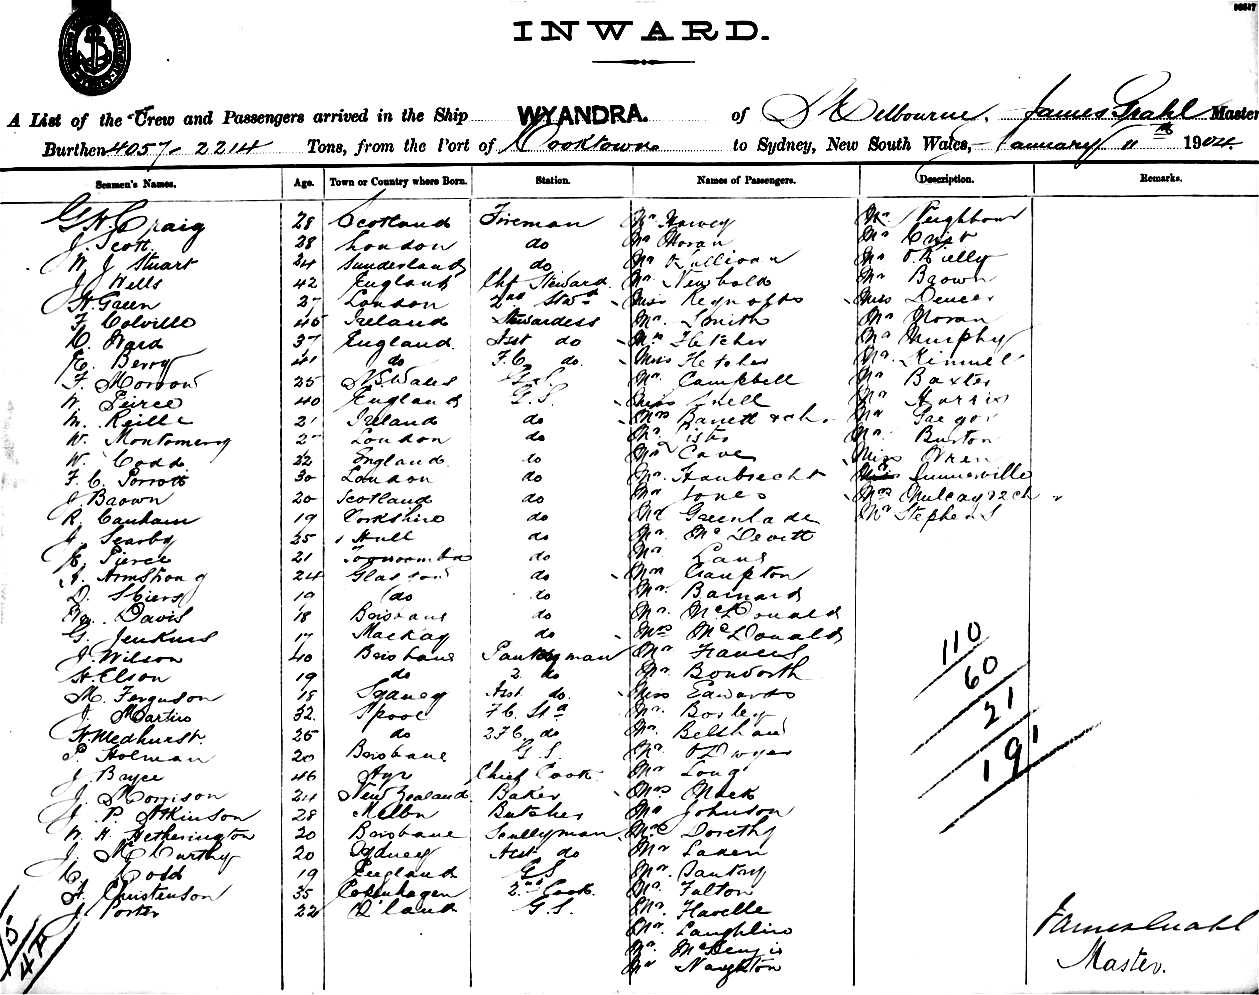 INWARD.
A List of the Crew and Passengers arrived in the Ship WYANDRA. of Melbourne, James Grahl Master
Burthen 4057-2214 Tons, from the Port of Cooktown to Sydney, New South Wales, January 11th 1904
Seamen's Names. Age. Town or Country where Born. Station. Names of Passengers. Description. Remarks.
G. H. Craig 28 Scotland Fireman Mr Harvey Mr Neighbour
J. Scott 28 London do Mr Horan Mr
W J Stuart 24 Sunderland do Mr Mr O'Kielly
J. Wells 42 England Chf Steward Mr Newbold Mr Brown
H. Green 27 London 2nd Stwd Miss Reynolds Miss Deucer
F. Colville 45 Ireland Stewardess Mr Smith Mr Horan
Ward 37 England Asst do Mrs Fletcher Mr Murphy
E. Berry 41 do F.C. do. Miss Fletcher Mr. Kimmel
F. Morrow 25 N S Wales G.S. Mr Campbell Mr Baxter
W. Peirce 40 England G.S. Miss Snell Mr Harris
M. Reille 21 Ireland do Mrs Barrett & ch. Mr Gregor
W. Montgomery 27 London do Mr. Mr. Burton
W. Codd 22 England do Mr Cave Miss Wren
F. C. Porrott 30 London do Mr. Haubrecht Miss Summerville
J Brown 20 Scotland do Mr Jones Mrs Mulcay & 2 ch
R. Canham 19 Yorkshire do Mr Greenlade Mr Stephens
J. Searby 25 Hull do Mr. McDevitt
E. Pierce 21 Toowoomba do Mr Lane
A. Armstrong 24 Glasgow do Mrs Crampton
D. 19 do do Mr Barnard
Davis 18 Brisbane do Mr. McDonald
G. Jenkins 17 Mackay do Mrs McDonald
J. Wilson 40 Brisbane Pantryman Mr Francis
H. Elson 19 do 2 do Mr Bonworth
M. Ferguson 18 Sydney Asst do. Miss Edwards
J. Martin 32 F.C. Mr. Bosley
H. Medhurst. 25 do 2 F C do Mr. Belshaw
Holman 20 Brisbane G.S. Mr O'Dwyer
J. Bryce 46 Ayr Chief Cook Mr Long
J. Morrison 24 New Zealand Baker Mrs Mack
J. P. Atkinson 28 Melbn Butcher Mr Johnson
W. H. Hetherington 20 Brisbane Scullyman Mrs Dorethy
J. McCarthy 20 Sydney Asst do Mr Laken
Codd 19 England GS Mr.
A. Christenson 35 Copenhagen 2nd Cook Mr. Fulton
J. Porter 22 Q'land G.S. Mr. Havelle
Mr. Laughlin
Mr. McKenzie
Mr Naughton
110
60
21
191
15
47
James Grahl
Master.